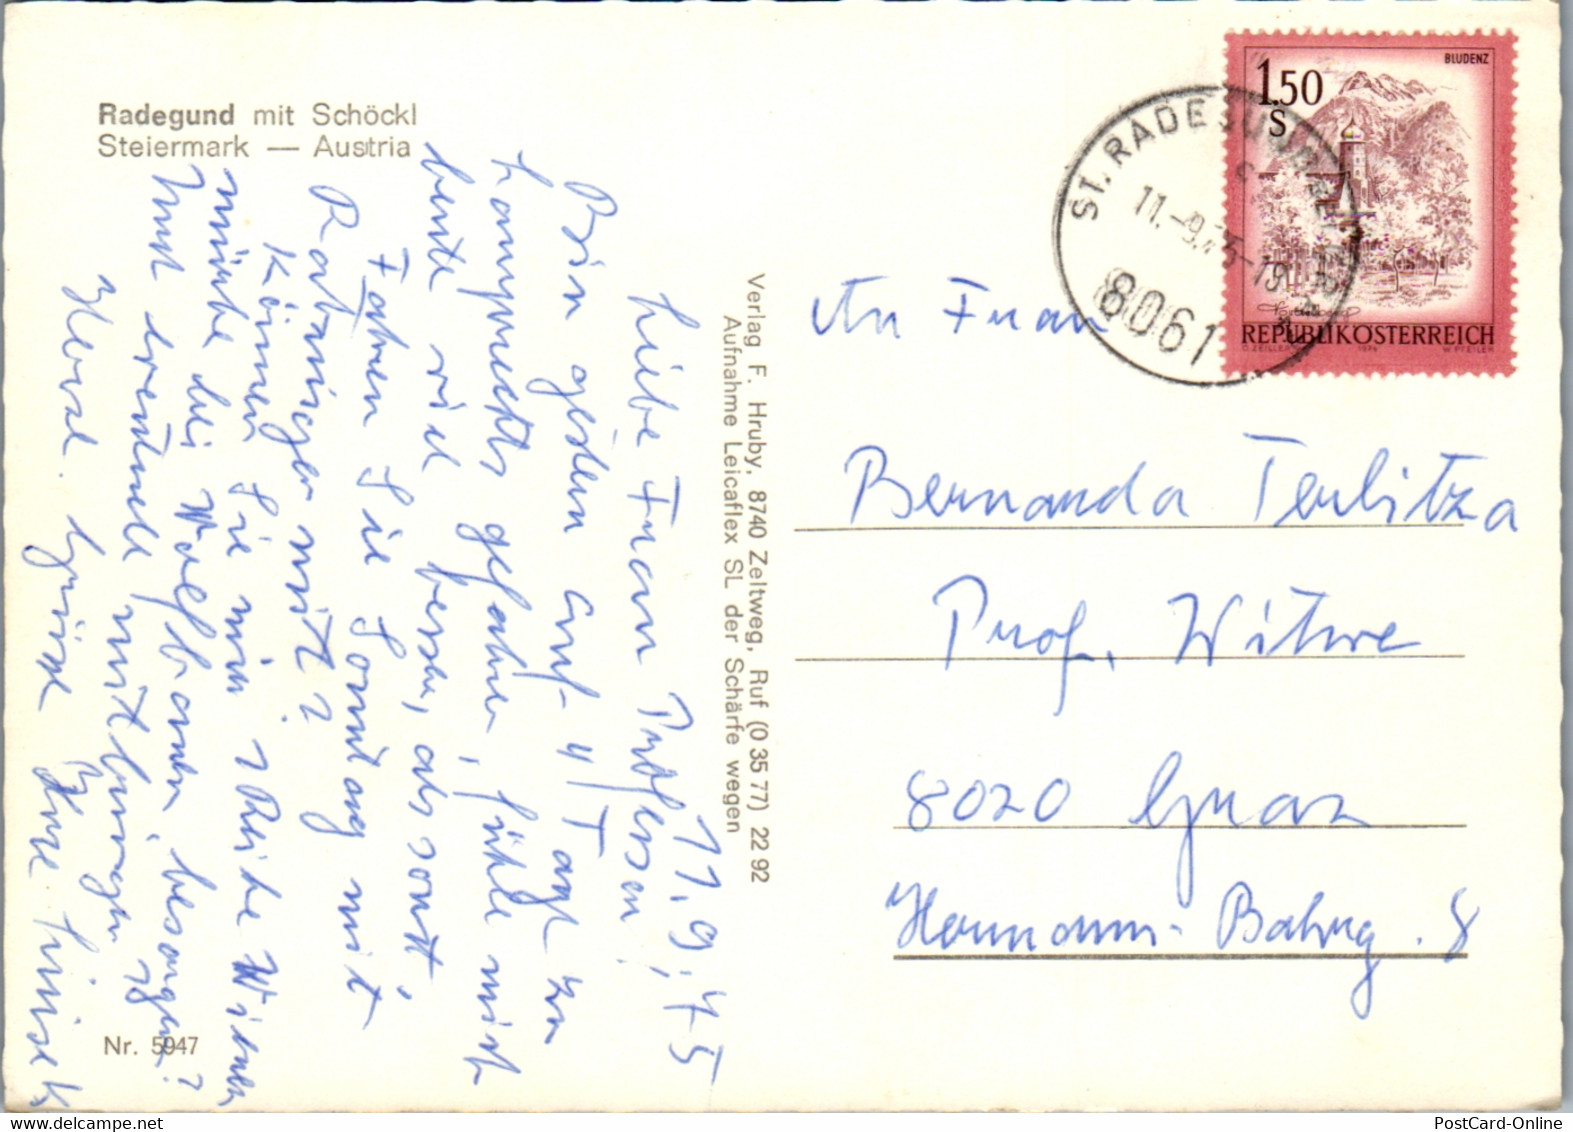 Radegund mit Schöckl
Steiermark — Austria
11.9.75
Liebe Frau Professor!
Bin gestern auf 4 Tage zu
gefahren, fühle mich
heute viel besser, als sonst,
Fahren Sie Sonntag mit
mit?
Können Sie mir 2 Wiener
bei besorgen?
und eventuell mitbringen
Herzl. Grüsse Ihre
Nr. 5947
Verlag F. Hruby, 8740 Zeltweg, Ruf (0 35 77) 22 92
Aufnahme Leicaflex SL der Schärfe wegen
1.50
S
BLUDENZ
REPUBLIK ÖSTERREICH
ST. RADEGUND
11.-9.75-15
8061
An Frau
Bernarda Terlitza
Prof. Witwe
8020 Graz
Hermann-Bahrg. 8
www.delcampe.net
PostCard-Online